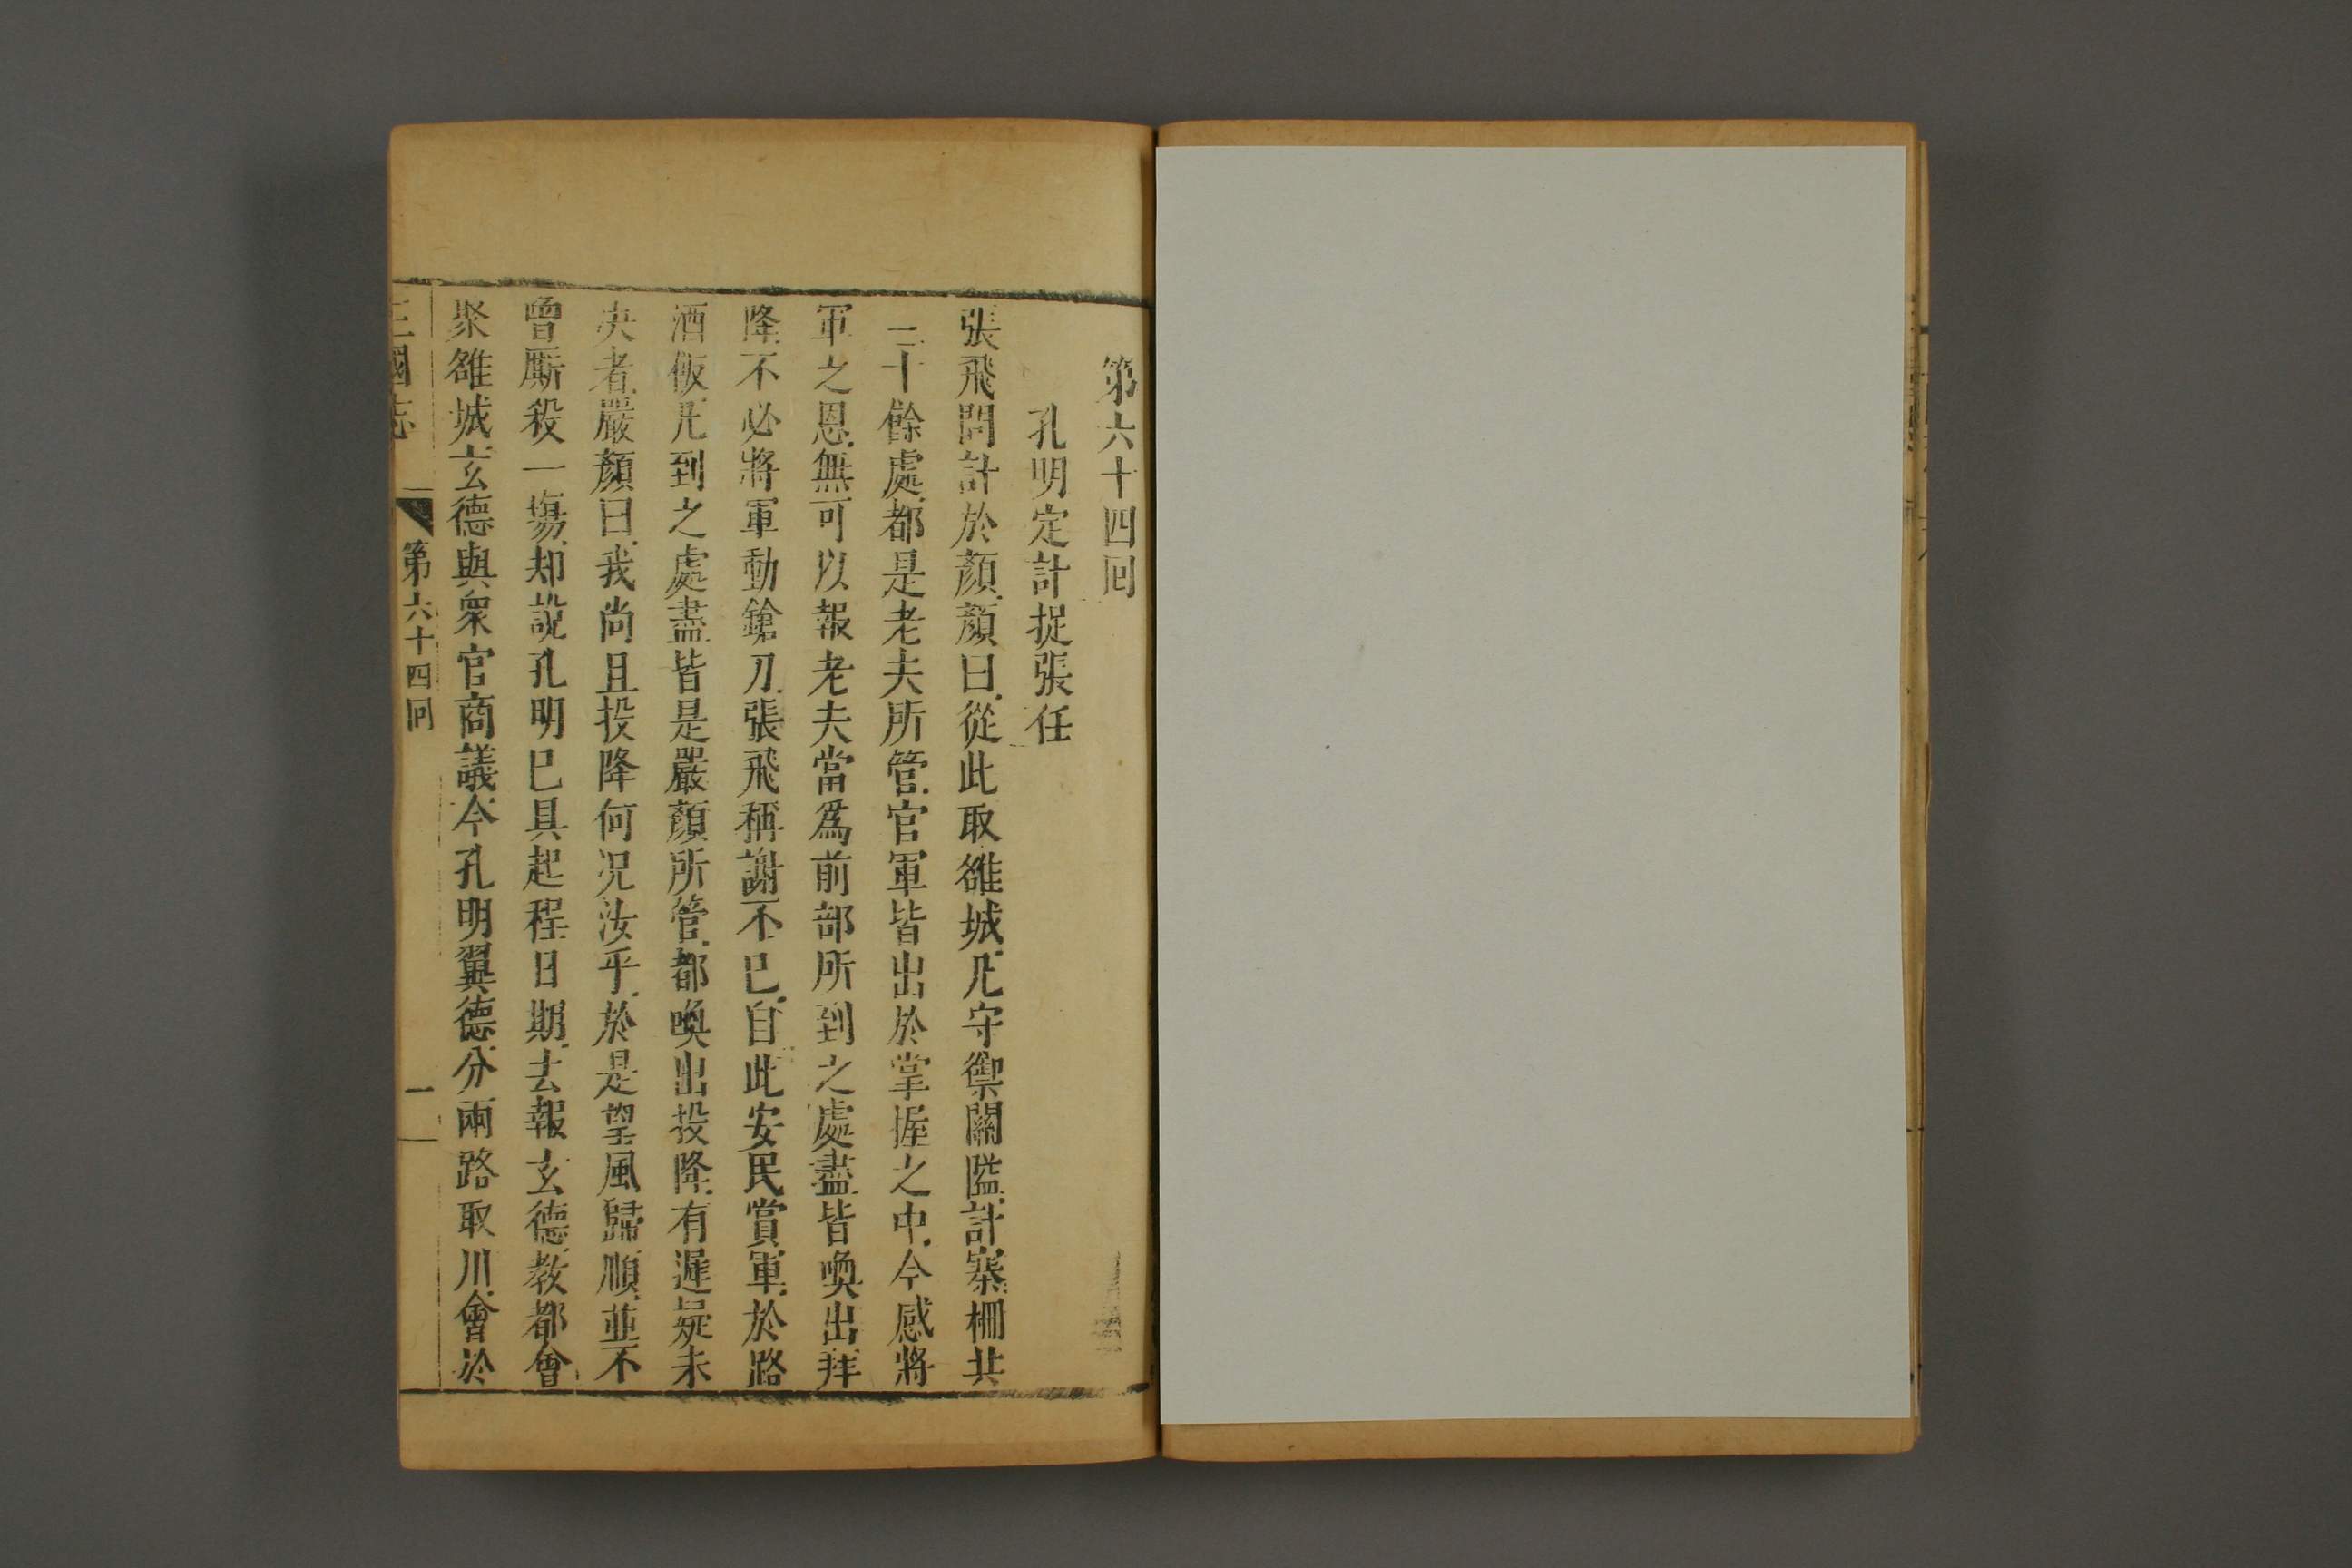 第六十四回
孔明定計捉張任
張飛問計於顏顏曰從此取雒城凡守禦關隘計寨柵共
二十餘處都是老夫所管官軍皆出於掌握之中今感將
軍之恩無可以報老夫當爲前部所到之處盡皆喚出拜
降不必將軍動鎗刀張飛稱謝不已自此安民賞軍於路
酒飯凡到之處盡皆是嚴顏所管都喚出投降有遲疑未
决者嚴顏曰我尚且投降何况汝乎於是望風歸順並不
曾厮殺一塲却說孔明已具起程日期去報玄德教都會
聚雒城玄德與衆官商議今孔明翼德分兩路取川會於
三國志 第六十四回 一